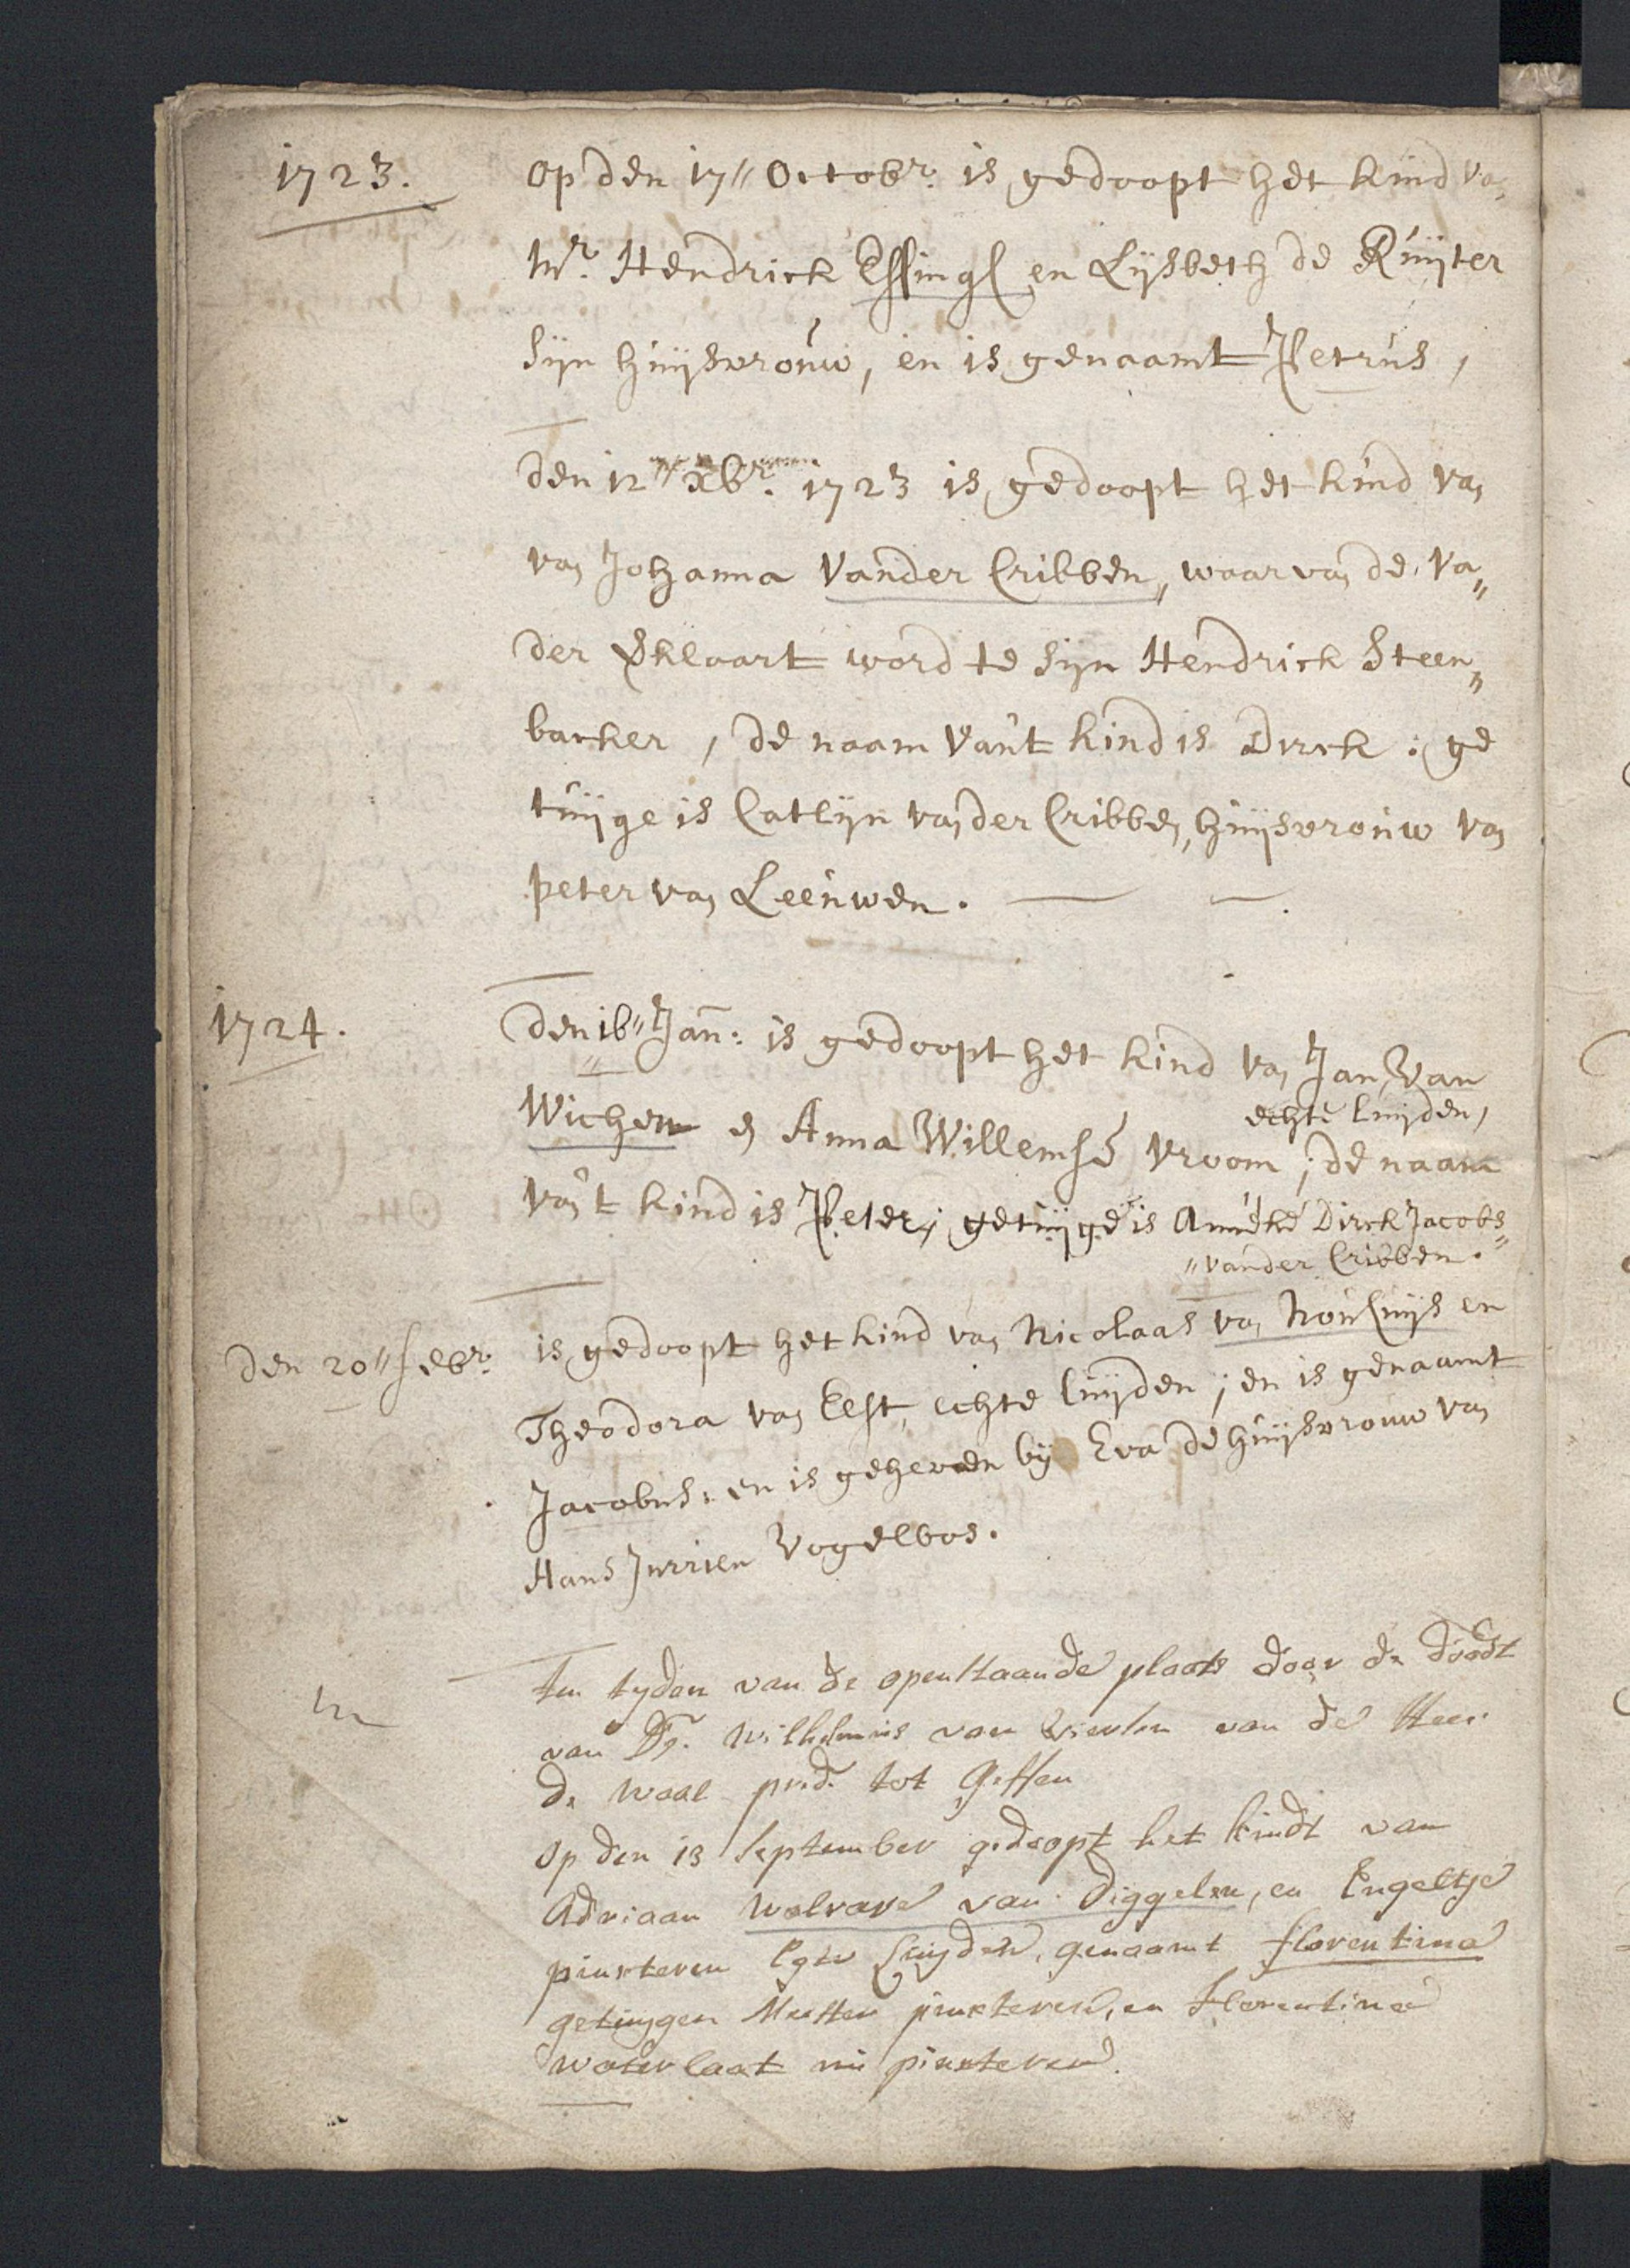 1723.
Op den 17" Octobr. is gedoopt het kind va
Mr. Hendrick Essingh en Lijsbeth de Ruijter
sijn huijsvrouw, en is genaamt Petrus,
den 12" xbr. 1723 is gedoopt het kind van
van Johanna Vander Cribben, waar van de va„
der verklaart word te sijn Hendrick Steen„
backer, de naam van't kind is Dirck; ge
tuijge is Catlijn vander Cribben, huijsvrouw van
peter van Leeuwen.
1724.
den 16" Jan: is gedoopt het kind van Jan Van
echte luijden,
Wichen en Anna Willemse Vroom; de naam
van't kind is Peter; getuijge is Anneke Dirck Jacobs„
"vander Cribben.
den 20" febr.
is gedoopt het kind van Nicolaas van Nouhuijs en
Theodora van Elst, echte luijden; en is genaamt
Jacobus, en is geheven bij Eva de huijsvrouw van
Hans Jurrien Vogelbos.
ten tyden van de openstaande plaats door de doodt
van Ds. Wilhelmus van den Heer
de Waal pred. tot Geffen
Op den 13 September gedoopt het kindt van
Adriaan Walrave van Diggelen, en Engeltje
pinxteren Egte Luyden, genaamt florentina
getuygen pinxteren, en Florentina
waterlaat nu pinxteren.